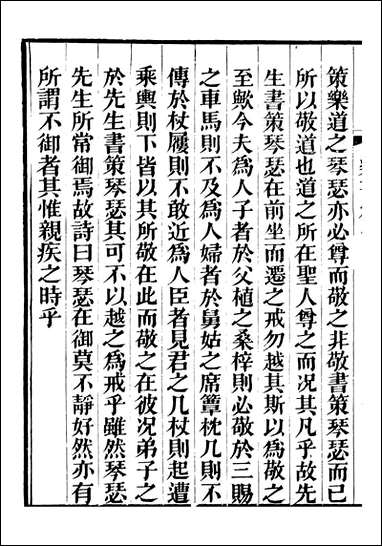 策樂道之琴瑟亦必尊而敬之非敬書策琴瑟而已
所以敬道也道之所在聖人尊之而况其凡乎故先
生書策琴瑟在前坐而遷之戒勿越其斯以爲敬之
至歟今夫爲人子者於父植之桑梓則必敬於三賜
之車馬則不及爲人婦者於舅姑之席簟枕几則不
傳於杖屨則不敢近爲人臣者見君之几杖則起遭
乘輿則下皆以其所敬在此而敬之在彼况弟子之
於先生書策琴瑟其可不以越之爲戒乎雖然琴瑟
先生所常御焉故詩曰琴瑟在御莫不靜好然亦有
所謂不御者其惟親疾之時乎